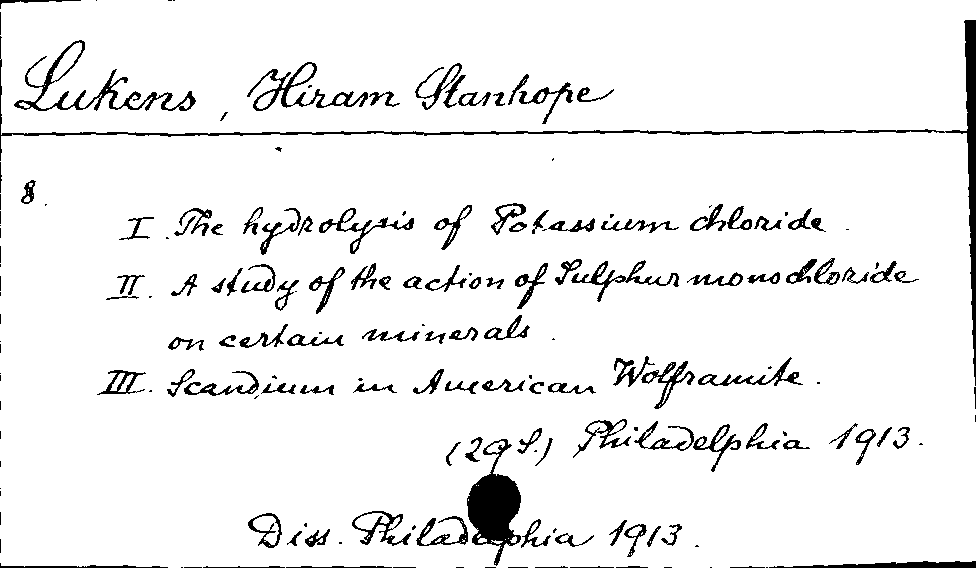 Lukens, Hiram Stanhope
8.
I. The hydrolysis of Potassium chloride.
II. A study of the action of Sulphur monochloride
on certain minerals.
III. Scandium in American Wolframite.
(29 S.) Philadelphia 1913.
Diss. Philadelphia 1913.